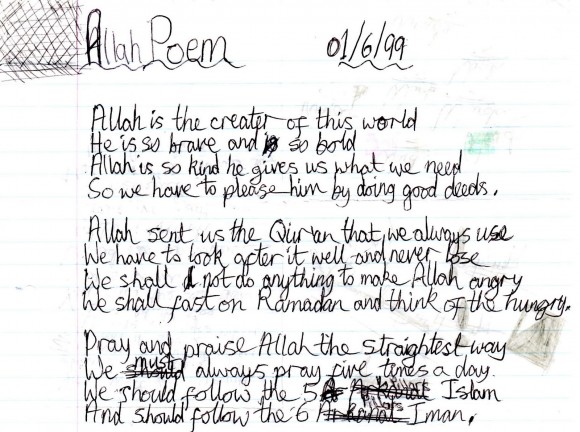 Allah Poem 01/6/99
Allah is the creater of this world
He is so brave and so bold
Allah is so kind he gives us what we need
So we have to please him by doing good deeds.
Allah sent us the Qur'an that we always use
We have to look after it well and never lose
We shall not do anything to make Allah angry
We shall fast on Ramadan and think of the hungry.
Pray and praise Allah the straightest way
We must always pray five times a day.
We should follow the 5 Islam
And should follow the 6 Iman.